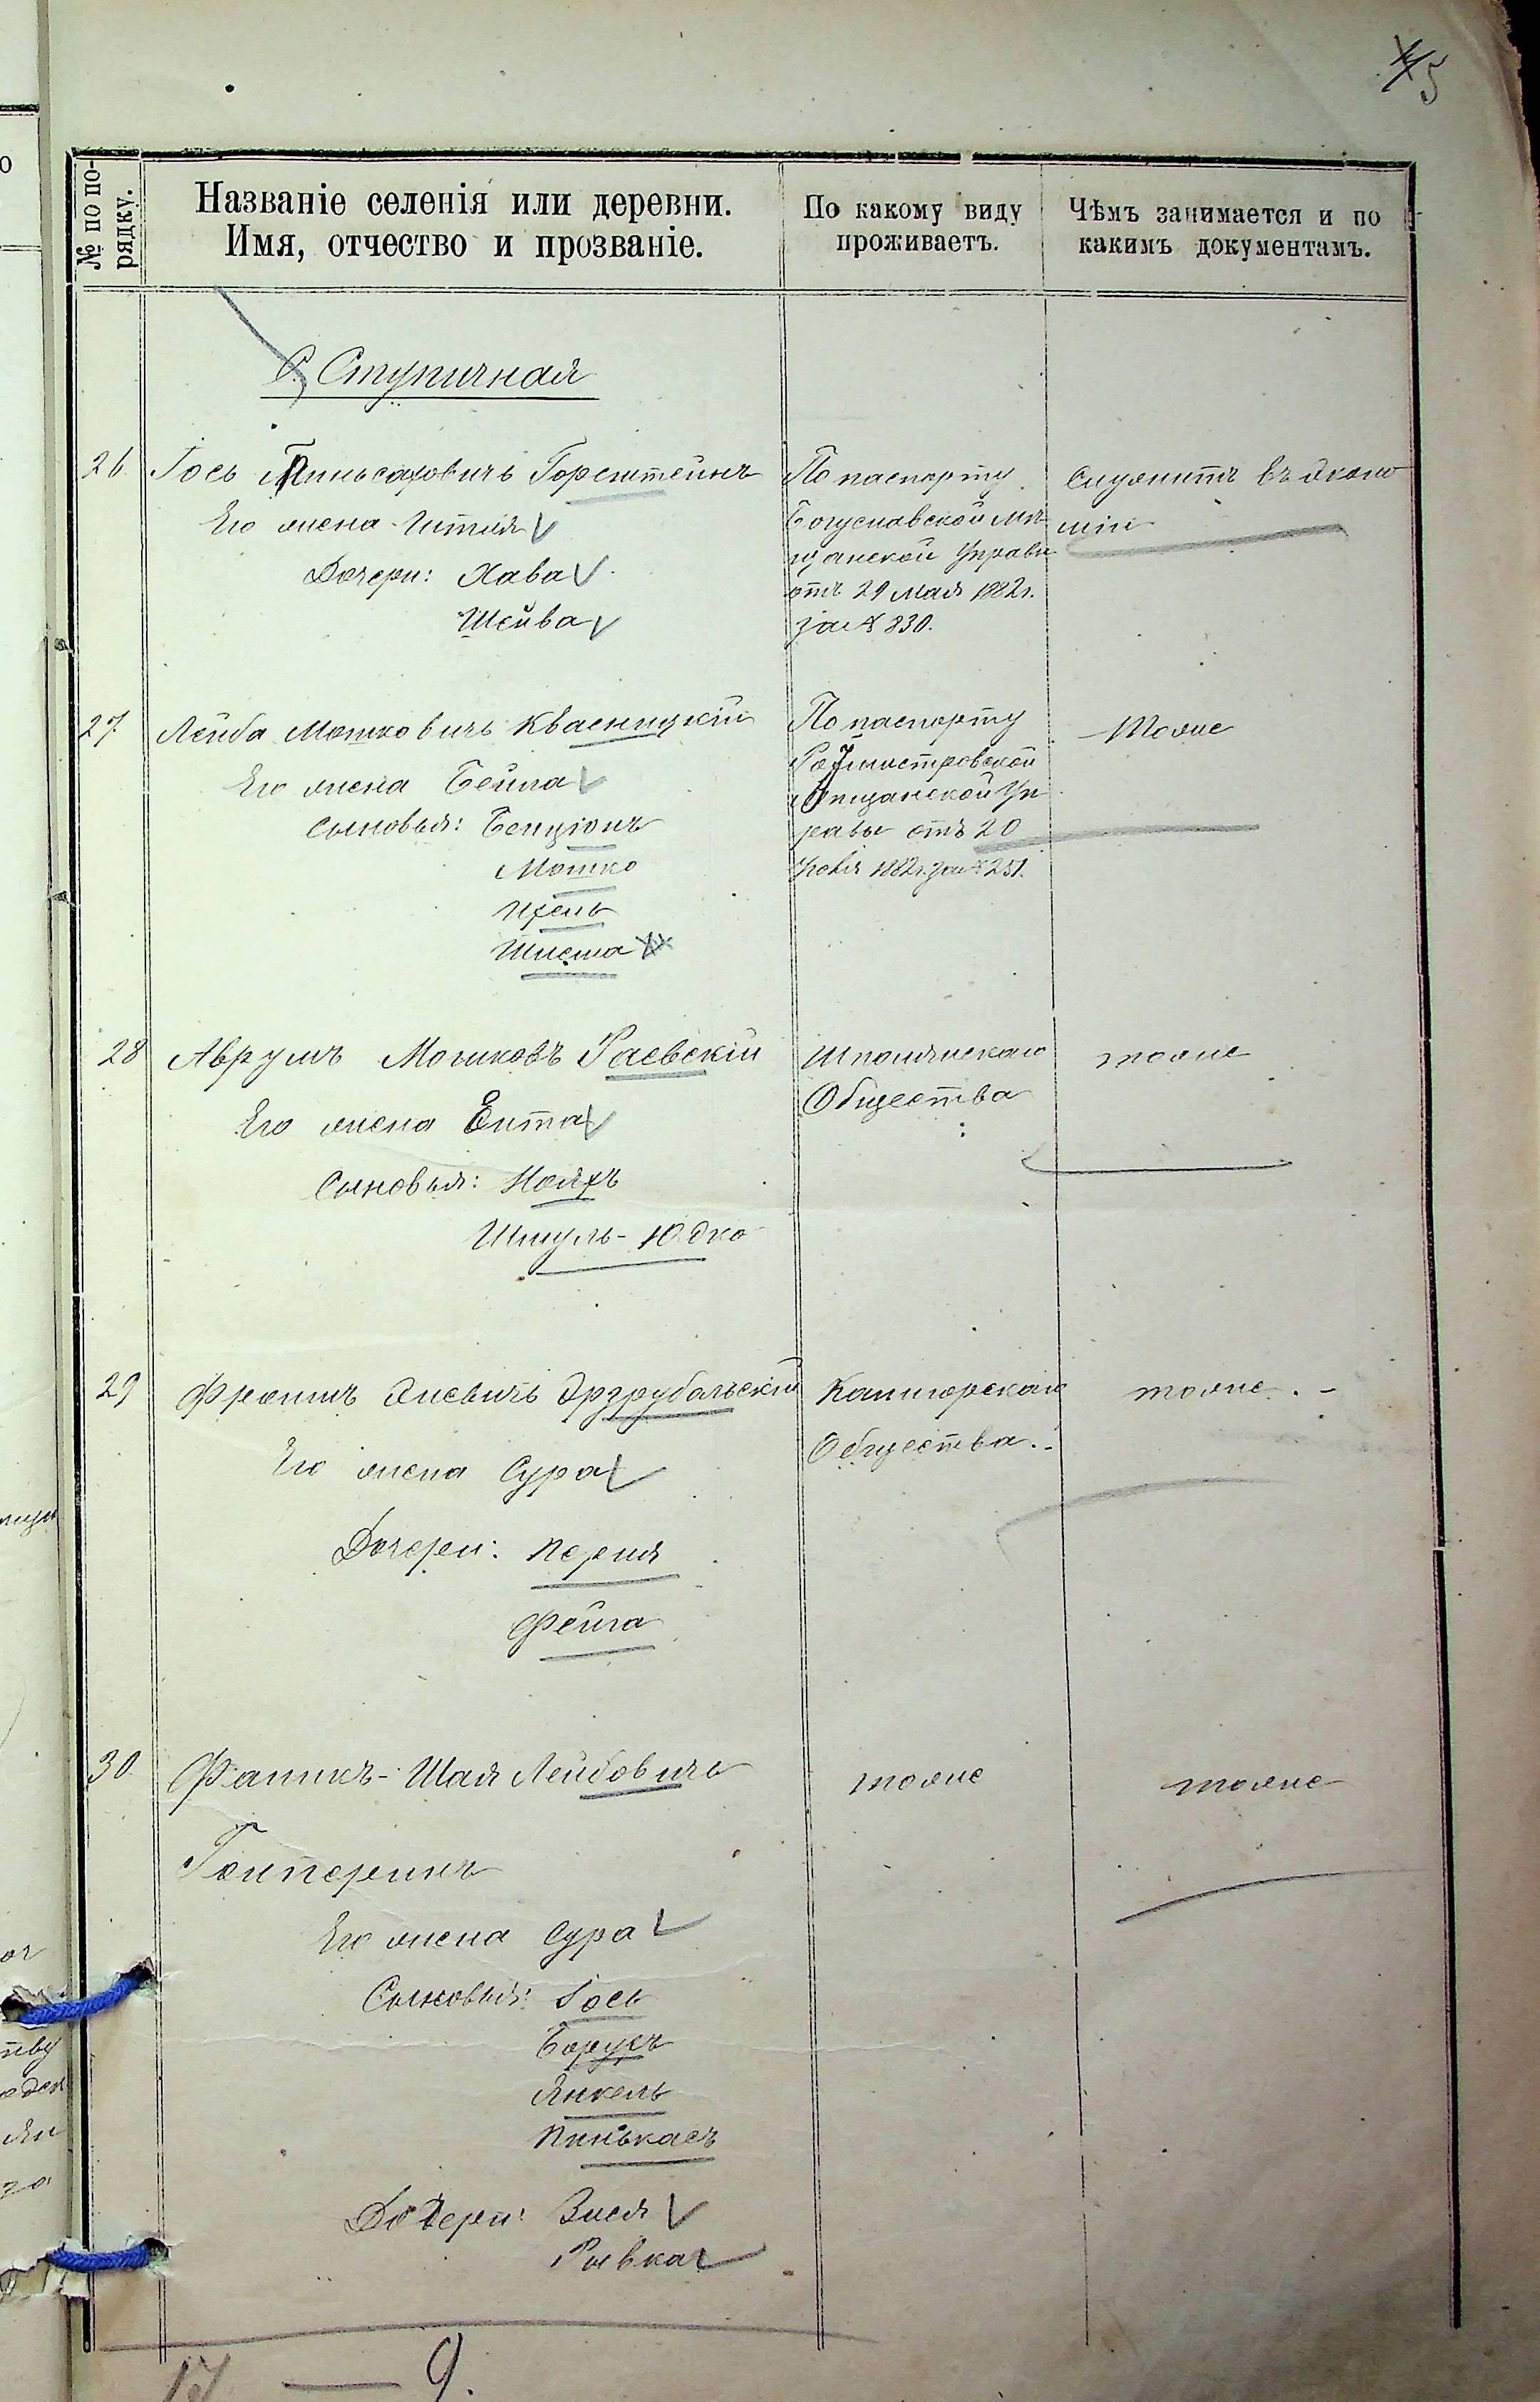 5
№ по по-
рядку.
Названіе селенія или деревни.
Имя, отчество и прозваніе.
По какому виду
проживаетъ.
Чѣмъ занимается и по
какимъ документамъ.
С. Ступичная
26. Іось Пиньсаховичъ Горенштейнъ
Его жена Гитля
Дочери: Хава
Шейва
По паспорту
Богуславской мѣ-
щанской Управы
отъ 29 Мая 1882 г.
за № 830.
Служитъ въ эконо
міи
27. Лейба Мошковичъ Квасницкій
Его жена Бейла
Сыновья: Бенціонъ
Мошко
Ихель
Шлема
По паспорту
Ротмистровской
Мѣщанской Уп
равы отъ 20
1882 г. за № 251.
Тоже
28 Аврумъ Мошковъ Раевскій
Его жена Ента
Сыновья: Нояхъ
Шмуль-Юдко
Шполянскаго
Общества
тоже
29 Фроимъ Эрзрубальскій
Его жена Сура
Дочери: Перля
Фейга
Калигорскаго
Общества.
тоже.
30 Шая Лейбовичъ
Гальперинъ
Его жена Сура
Сыновья: Іось
Борухъ
Янкель
Пинькасъ
Дочери: Зися
Рывка
тоже
тоже
17 — 9.